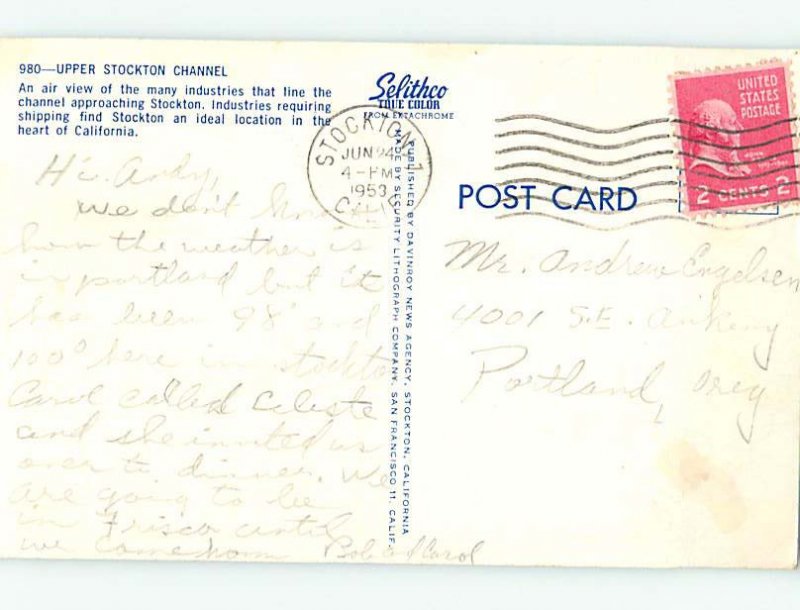 980—UPPER STOCKTON CHANNEL
An air view of the many industries that line the
channel approaching Stockton. Industries requiring
shipping find Stockton an ideal location in the
heart of California.
Selithco
TRUE COLOR
FROM EKTACHROME
STOCKTON 1
JUN 24
4-PM
1953
CALIF
UNITED
STATES
POSTAGE
2 CENTS 2
POST CARD
PUBLISHED BY DAVINROY NEWS AGENCY, STOCKTON, CALIFORNIA
MADE BY SECURITY LITHOGRAPH COMPANY, SAN FRANCISCO 11, CALIF.
Hi Andy,
We don't know
how the weather is
in portland but it
has been 98° and
100° here in stockton
Carol called Celeste
and she invited us
over to dinner. We
are going to be
in Frisco until
we come hom Bob and Carol
Mr. Andrew Engelsen
4001 S.E. Ankeny
Portland, Oreg